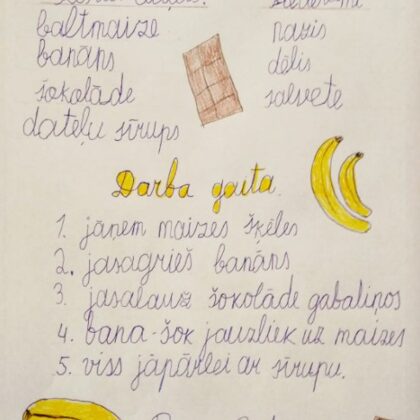 baltmaize
banāns
šokolāde
dateļu sīrups
nazis
dēlis
salvete
Darba gaita.
1. jāņem maizes šķēles
2. jāsagriež banāns
3. jāsalauž šokolāde gabaliņos
4. bana-šok jāuzliek uz maizes
5. viss jāpārlej ar sīrupu.